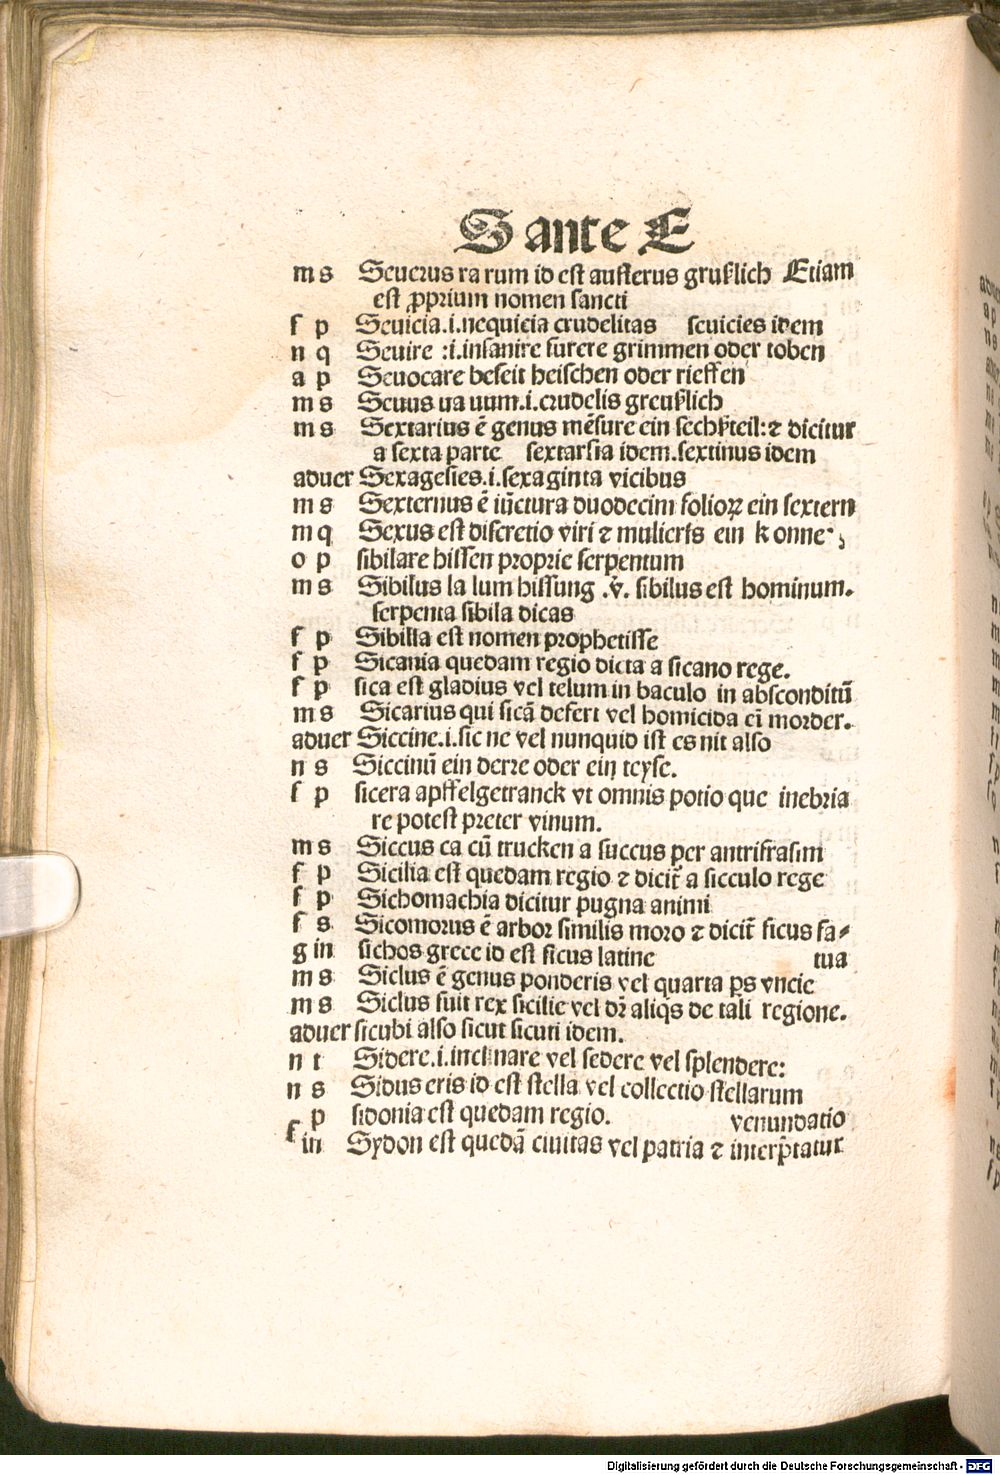 S ante E
m s Seuerus ra rum id est austerus grußlich Etiam
est ꝓprium nomen sancti
f p Seuicia .i. nequicia crudelitas seuicies idem
n q Seuire :i. insanire furere grimmen oder toben
a p Seuocare beseit heischen oder rieffen
m s Seuus ua uum .i. crudelis greußlich
m s Sextarius ē genus mēsure ein sechßteil: ⁊ dicitur
a sexta parte sextarsia idem. sextinus idem
aduer Sexagesies .i. sexaginta vicibus
m s Sexternus ē iūctura duodecim folioꝝ ein sextern
m q Sexus est discretio viri ⁊ mulieris ein k onne
o p sibilare hissen proprie serpentum
m s Sibilus la lum hissung .v̄. sibilus est hominum.
serpenta sibila dicas
f p Sibilla est nomen prophetisse
f p Sicania quedam regio dicta a sicano rege.
f p sica est gladius vel telum in baculo in absconditū
m s Sicarius qui sicā defert vel homicida eī morder.
aduer Siccine .i. sic ne vel nunquid ist es nit also
n s Siccinū ein derre oder ein teyse.
f p sicera apffelgetranck vt omnis potio que inebria
re potest preter vinum.
m s Siccus ca cū trucken a succus per antrifrasim
f p Sicilia est quedam regio ⁊ dicit̄ a sicculo rege
f p Sichomachia dicitur pugna animi
f s Sicomorus ē arbor similis moro ⁊ dicit̄ ficus fa⸗
g in sichos grece id est ficus latine tua
m s Siclus ē genus ponderis vel quarta ꝑs vncie
m s Siclus fuit rex sicilie vel dr̄ aliq̇s de tali regione.
aduer sicubi also sicut sicuti idem.
n t Sidere .i. inclinare vel sedere vel splendere:
n s Sidus eris id est stella vel collectio stellarum
p sidonia est quedam regio. venundatio
f in Sydon est quedā ciuitas vel patria ⁊ interp̄tatur
Digitalisierung gefördert durch die Deutsche Forschungsgemeinschaft - DFG